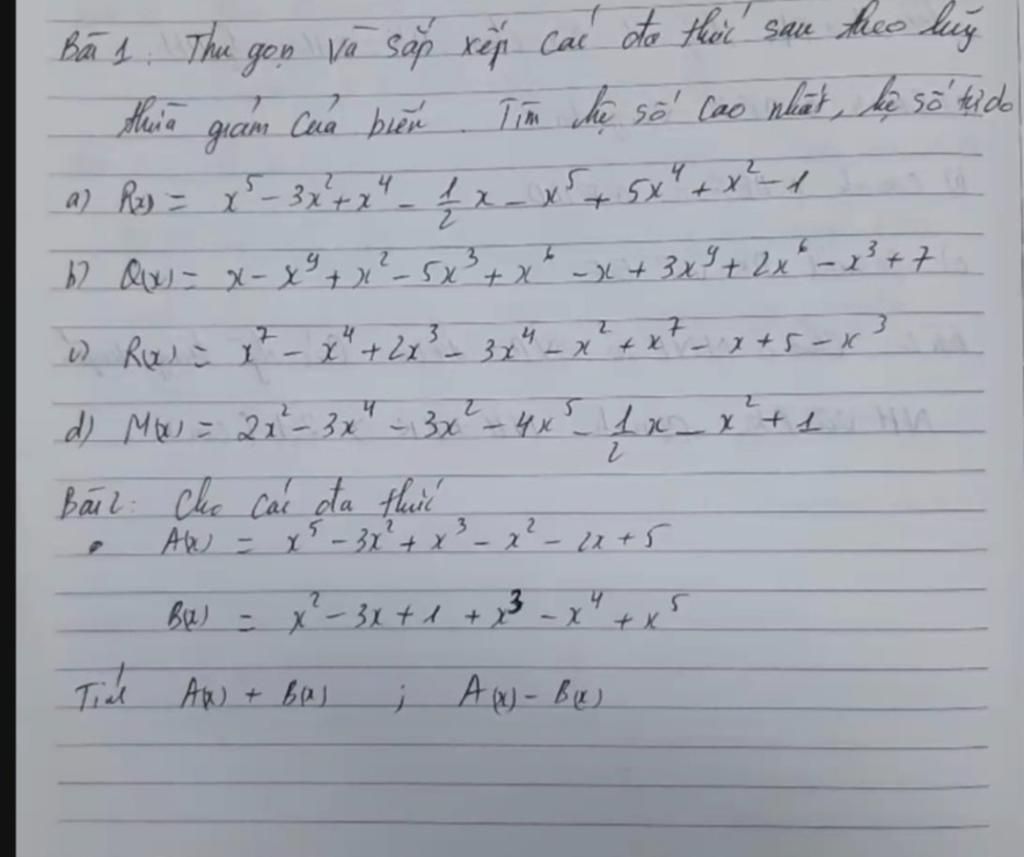 Bài 1: Thu gọn và sắp xếp các đa thức sau theo lũy
thừa giảm của biến. Tìm hệ số cao nhất, hệ số tự do
a) P(x) = x⁵ - 3x² + x⁴ - 1/2 x - x⁵ + 5x⁴ + x² - 1
b) Q(x) = x - x⁹ + x² - 5x³ + x⁶ - x + 3x⁹ + 2x⁶ - x³ + 7
c) R(x) = x⁷ - x⁴ + 2x³ - 3x⁴ - x² + x⁷ - x + 5 - x³
d) M(x) = 2x² - 3x⁴ - 3x² - 4x⁵ - 1/2 x - x² + 1
Bài 2: Cho các đa thức
• A(x) = x⁵ - 3x² + x³ - x² - 2x + 5
B(x) = x² - 3x + 1 + x³ - x⁴ + x⁵
Tính A(x) + B(x) ; A(x) - B(x)